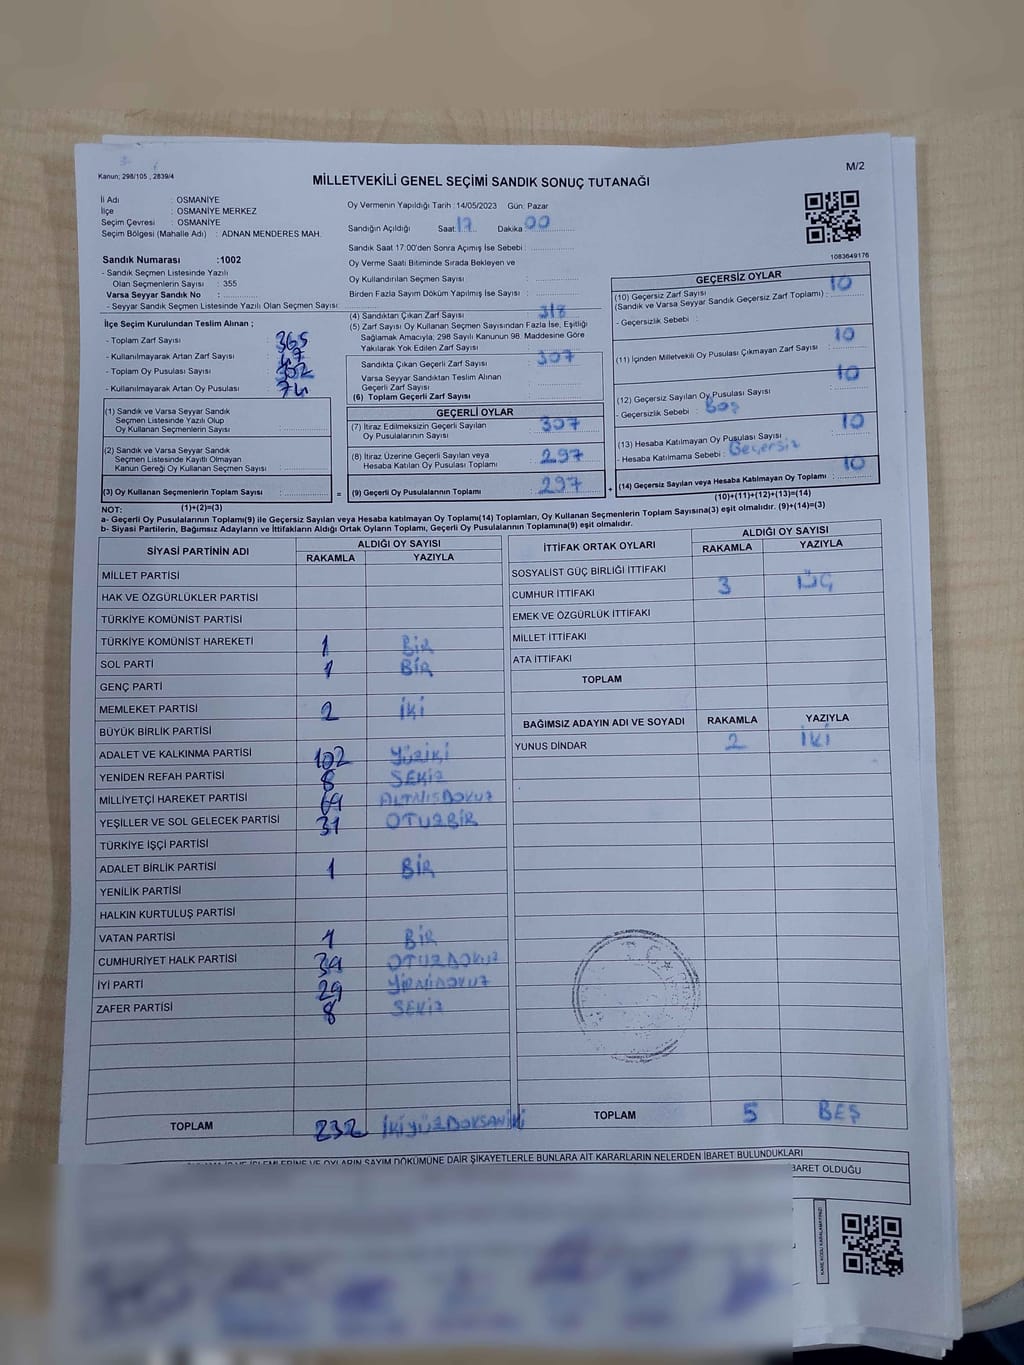 M/2
Kanun; 298/105 , 2839/4
MİLLETVEKİLİ GENEL SEÇİMİ SANDIK SONUÇ TUTANAĞI
İl Adı : OSMANİYE
İlçe : OSMANİYE MERKEZ
Seçim Çevresi : OSMANİYE
Seçim Bölgesi (Mahalle Adı) : ADNAN MENDERES MAH.
Oy Vermenin Yapıldığı Tarih : 14/05/2023 Gün: Pazar
Sandığın Açıldığı Saat: 17 Dakika 00
Sandık Saat 17:00'den Sonra Açımış İse Sebebi :
Oy Verme Saati Bitiminde Sırada Bekleyen ve
Oy Kullandırılan Seçmen Sayısı :
Birden Fazla Sayım Döküm Yapılmış İse Sayısı :
1083649176
Sandık Numarası :1002
- Sandık Seçmen Listesinde Yazılı
Olan Seçmenlerin Sayısı : 355
Varsa Seyyar Sandık No :
- Seyyar Sandık Seçmen Listesinde Yazılı Olan Seçmen Sayısı:
İlçe Seçim Kurulundan Teslim Alınan ;
- Toplam Zarf Sayısı : 365
- Kullanılmayarak Artan Zarf Sayısı : 47
- Toplam Oy Pusulası Sayısı :
- Kullanılmayarak Artan Oy Pusulası :
(1) Sandık ve Varsa Seyyar Sandık
Seçmen Listesinde Yazılı Olup
Oy Kullanan Seçmenlerin Sayısı :
(2) Sandık ve Varsa Seyyar Sandık
Seçmen Listesinde Kayıtlı Olmayan
Kanun Gereği Oy Kullanan Seçmen Sayısı :
(3) Oy Kullanan Seçmenlerin Toplam Sayısı : =
(4) Sandıktan Çıkan Zarf Sayısı : 318
(5) Zarf Sayısı Oy Kullanan Seçmen Sayısından Fazla İse, Eşitliği
Sağlamak Amacıyla; 298 Sayılı Kanunun 98. Maddesine Göre
Yakılarak Yok Edilen Zarf Sayısı :
Sandıkta Çıkan Geçerli Zarf Sayısı : 307
Varsa Seyyar Sandıktan Teslim Alınan
Geçerli Zarf Sayısı :
(6) Toplam Geçerli Zarf Sayısı :
GEÇERLİ OYLAR
(7) İtiraz Edilmeksizin Geçerli Sayılan
Oy Pusulalarının Sayısı : 307
(8) İtiraz Üzerine Geçerli Sayılan veya
Hesaba Katılan Oy Pusulası Toplamı : 297
(9) Geçerli Oy Pusulalarının Toplamı : 297 +
GEÇERSİZ OYLAR
(10) Geçersiz Zarf Sayısı
(Sandık ve Varsa Seyyar Sandık Geçersiz Zarf Toplamı) : 10
- Geçersizlik Sebebi :
(11) İçinden Milletvekili Oy Pusulası Çıkmayan Zarf Sayısı : 10
(12) Geçersiz Sayılan Oy Pusulası Sayısı : 10
- Geçersizlik Sebebi : Boş
(13) Hesaba Katılmayan Oy Pusulası Sayısı : 10
- Hesaba Katılmama Sebebi : Geçersiz
(14) Geçersiz Sayılan veya Hesaba Katılmayan Oy Toplamı : 10
NOT: (1)+(2)=(3) (10)+(11)+(12)+(13)=(14)
a- Geçerli Oy Pusulalarının Toplamı(9) ile Geçersiz Sayılan veya Hesaba katılmayan Oy Toplamı(14) Toplamları, Oy Kullanan Seçmenlerin Toplam Sayısına(3) eşit olmalıdır. (9)+(14)=(3)
b- Siyasi Partilerin, Bağımsız Adayların ve İttifakların Aldığı Ortak Oyların Toplamı, Geçerli Oy Pusulalarının Toplamına(9) eşit olmalıdır.
SİYASİ PARTİNİN ADI ALDIĞI OY SAYISI
RAKAMLA YAZIYLA
MİLLET PARTİSİ
HAK VE ÖZGÜRLÜKLER PARTİSİ
TÜRKİYE KOMÜNİST PARTİSİ
TÜRKİYE KOMÜNİST HAREKETİ 1 BİR
SOL PARTİ 1 BİR
GENÇ PARTİ
MEMLEKET PARTİSİ 2 İKİ
BÜYÜK BİRLİK PARTİSİ
ADALET VE KALKINMA PARTİSİ 102 YÜZİKİ
YENİDEN REFAH PARTİSİ 8 SEKİZ
MİLLİYETÇİ HAREKET PARTİSİ 69 ALTMIŞDOKUZ
YEŞİLLER VE SOL GELECEK PARTİSİ 31 OTUZBİR
TÜRKİYE İŞÇİ PARTİSİ
ADALET BİRLİK PARTİSİ 1 BİR
YENİLİK PARTİSİ
HALKIN KURTULUŞ PARTİSİ
VATAN PARTİSİ 1 BİR
CUMHURİYET HALK PARTİSİ 39 OTUZDOKUZ
İYİ PARTİ 29 YİRMİDOKUZ
ZAFER PARTİSİ 8 SEKİZ
TOPLAM 232 İKİYÜZDOKSANİKİ
İTTİFAK ORTAK OYLARI ALDIĞI OY SAYISI
RAKAMLA YAZIYLA
SOSYALİST GÜÇ BİRLİĞİ İTTİFAKI
CUMHUR İTTİFAKI 3 ÜÇ
EMEK VE ÖZGÜRLÜK İTTİFAKI
MİLLET İTTİFAKI
ATA İTTİFAKI
TOPLAM
BAĞIMSIZ ADAYIN ADI VE SOYADI RAKAMLA YAZIYLA
YUNUS DİNDAR 2 İKİ
TOPLAM 5 BEŞ
OYLARIN SAYIM DÖKÜMÜNE DAİR ŞİKAYETLERLE BUNLARA AİT KARARLARIN NELERDEN İBARET BULUNDUKLARI
İBARET OLDUĞU
KARE KODU KARALAMAYINIZ!